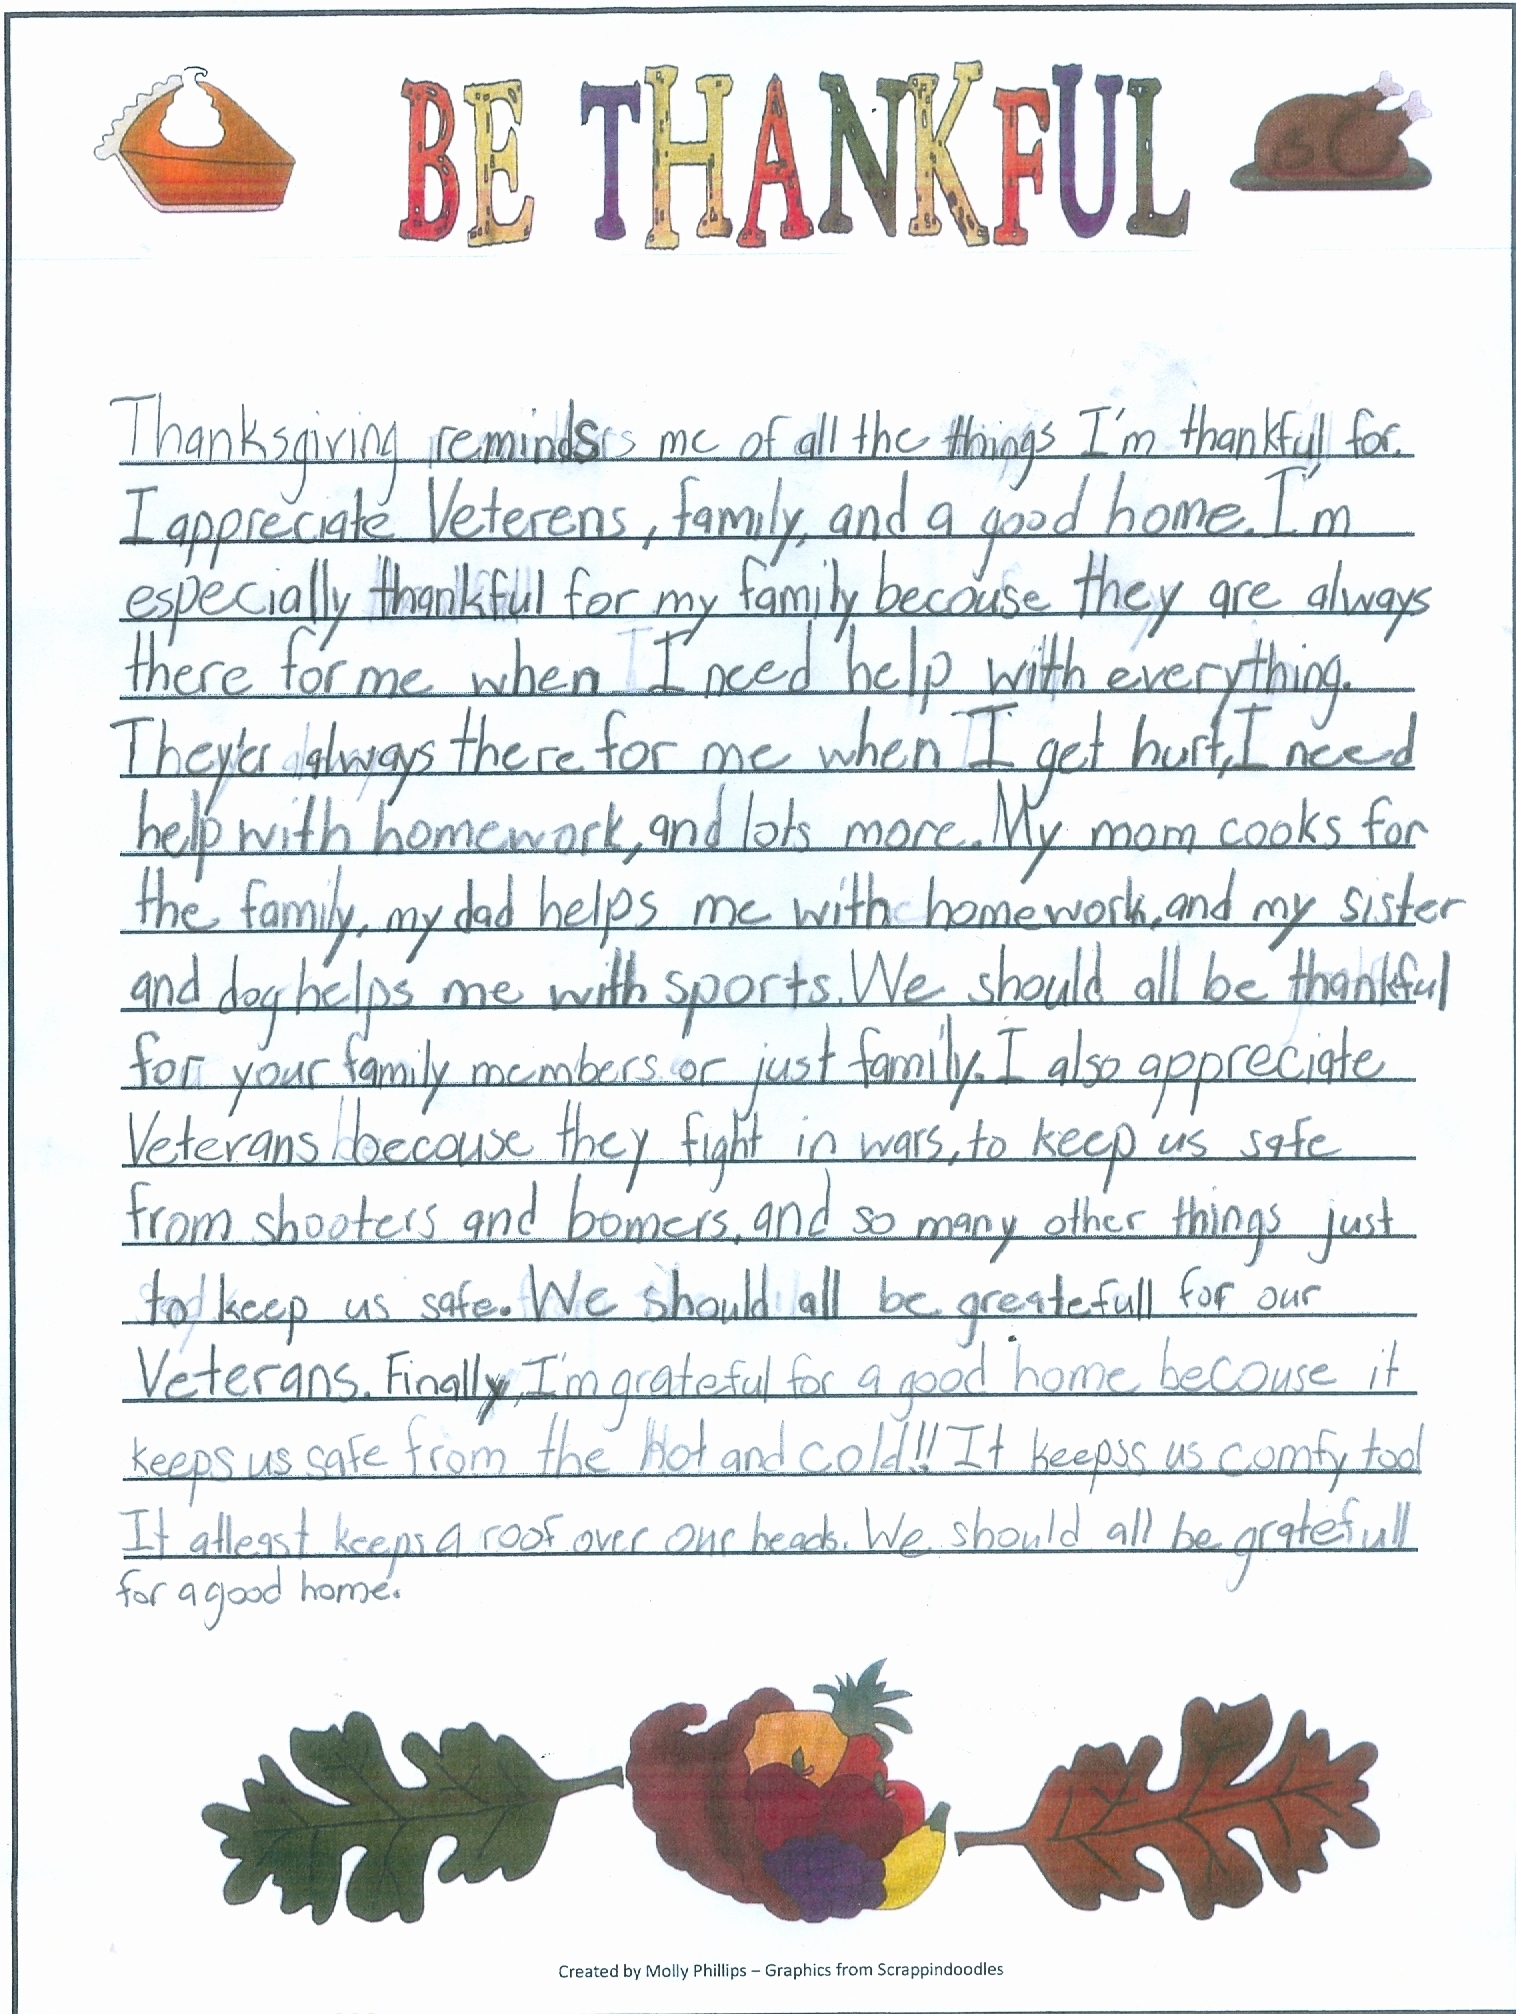 BE THANKFUL
Thanksgiving reminds me of all the things I'm thankful for.
I appreciate Veterens, family, and a good home. I'm
especially thankful for my family becouse they are always
there for me when I need help with everything.
They'er always there for me when I get hurt, I need
help with homework, and lots more. My mom cooks for
the family, my dad helps me with homework, and my sister
and dog helps me with sports. We should all be thankful
for your family members or just family. I also appreciate
Veterans becouse they fight in wars, to keep us safe
from shooters and bomers, and so many other things just
to keep us safe. We should all be greatefull for our
Veterans. Finally, I'm grateful for a good home becouse it
keeps us safe from the Hot and cold!! It keepss us comfy too!
It atleast keeps a roof over our heads. We should all be gratefull
for a good home.
Created by Molly Phillips – Graphics from Scrappindoodles